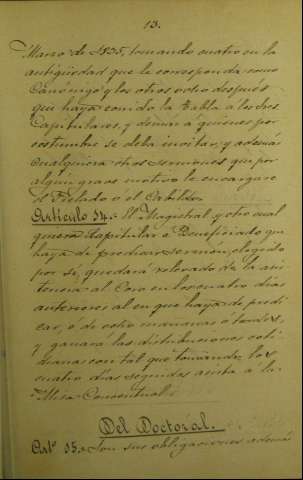 13.
Marzo de 1835, tomando cuatro en la
antigüedad que le corresponda como
Canónigo y los otros ocho después
que haya corrido la tabla a los Sres.
Capitulares, y demás á quienes por
costumbre se deba invitar, y además
cualquiera otros sermones que por
algún grave motivo le encargare
el Prelado ó el Cabildo.
Artículo 14.- El Magistral y otro cual
quiera Capitular ó Beneficiado que
haya de predicar sermón, elegido
por sí, quedará relevado de la asis
tencia al Coro en los cuatro días
anteriores al en que haya de predi
car, o de ocho mañanas ó tardes,
y ganará las distribuciones coti
dianas con tal que tomando los
cuatro días seguidos asista á la
Misa Conventual.
Del Doctoral.
Artº 15.- Son sus obligaciones además